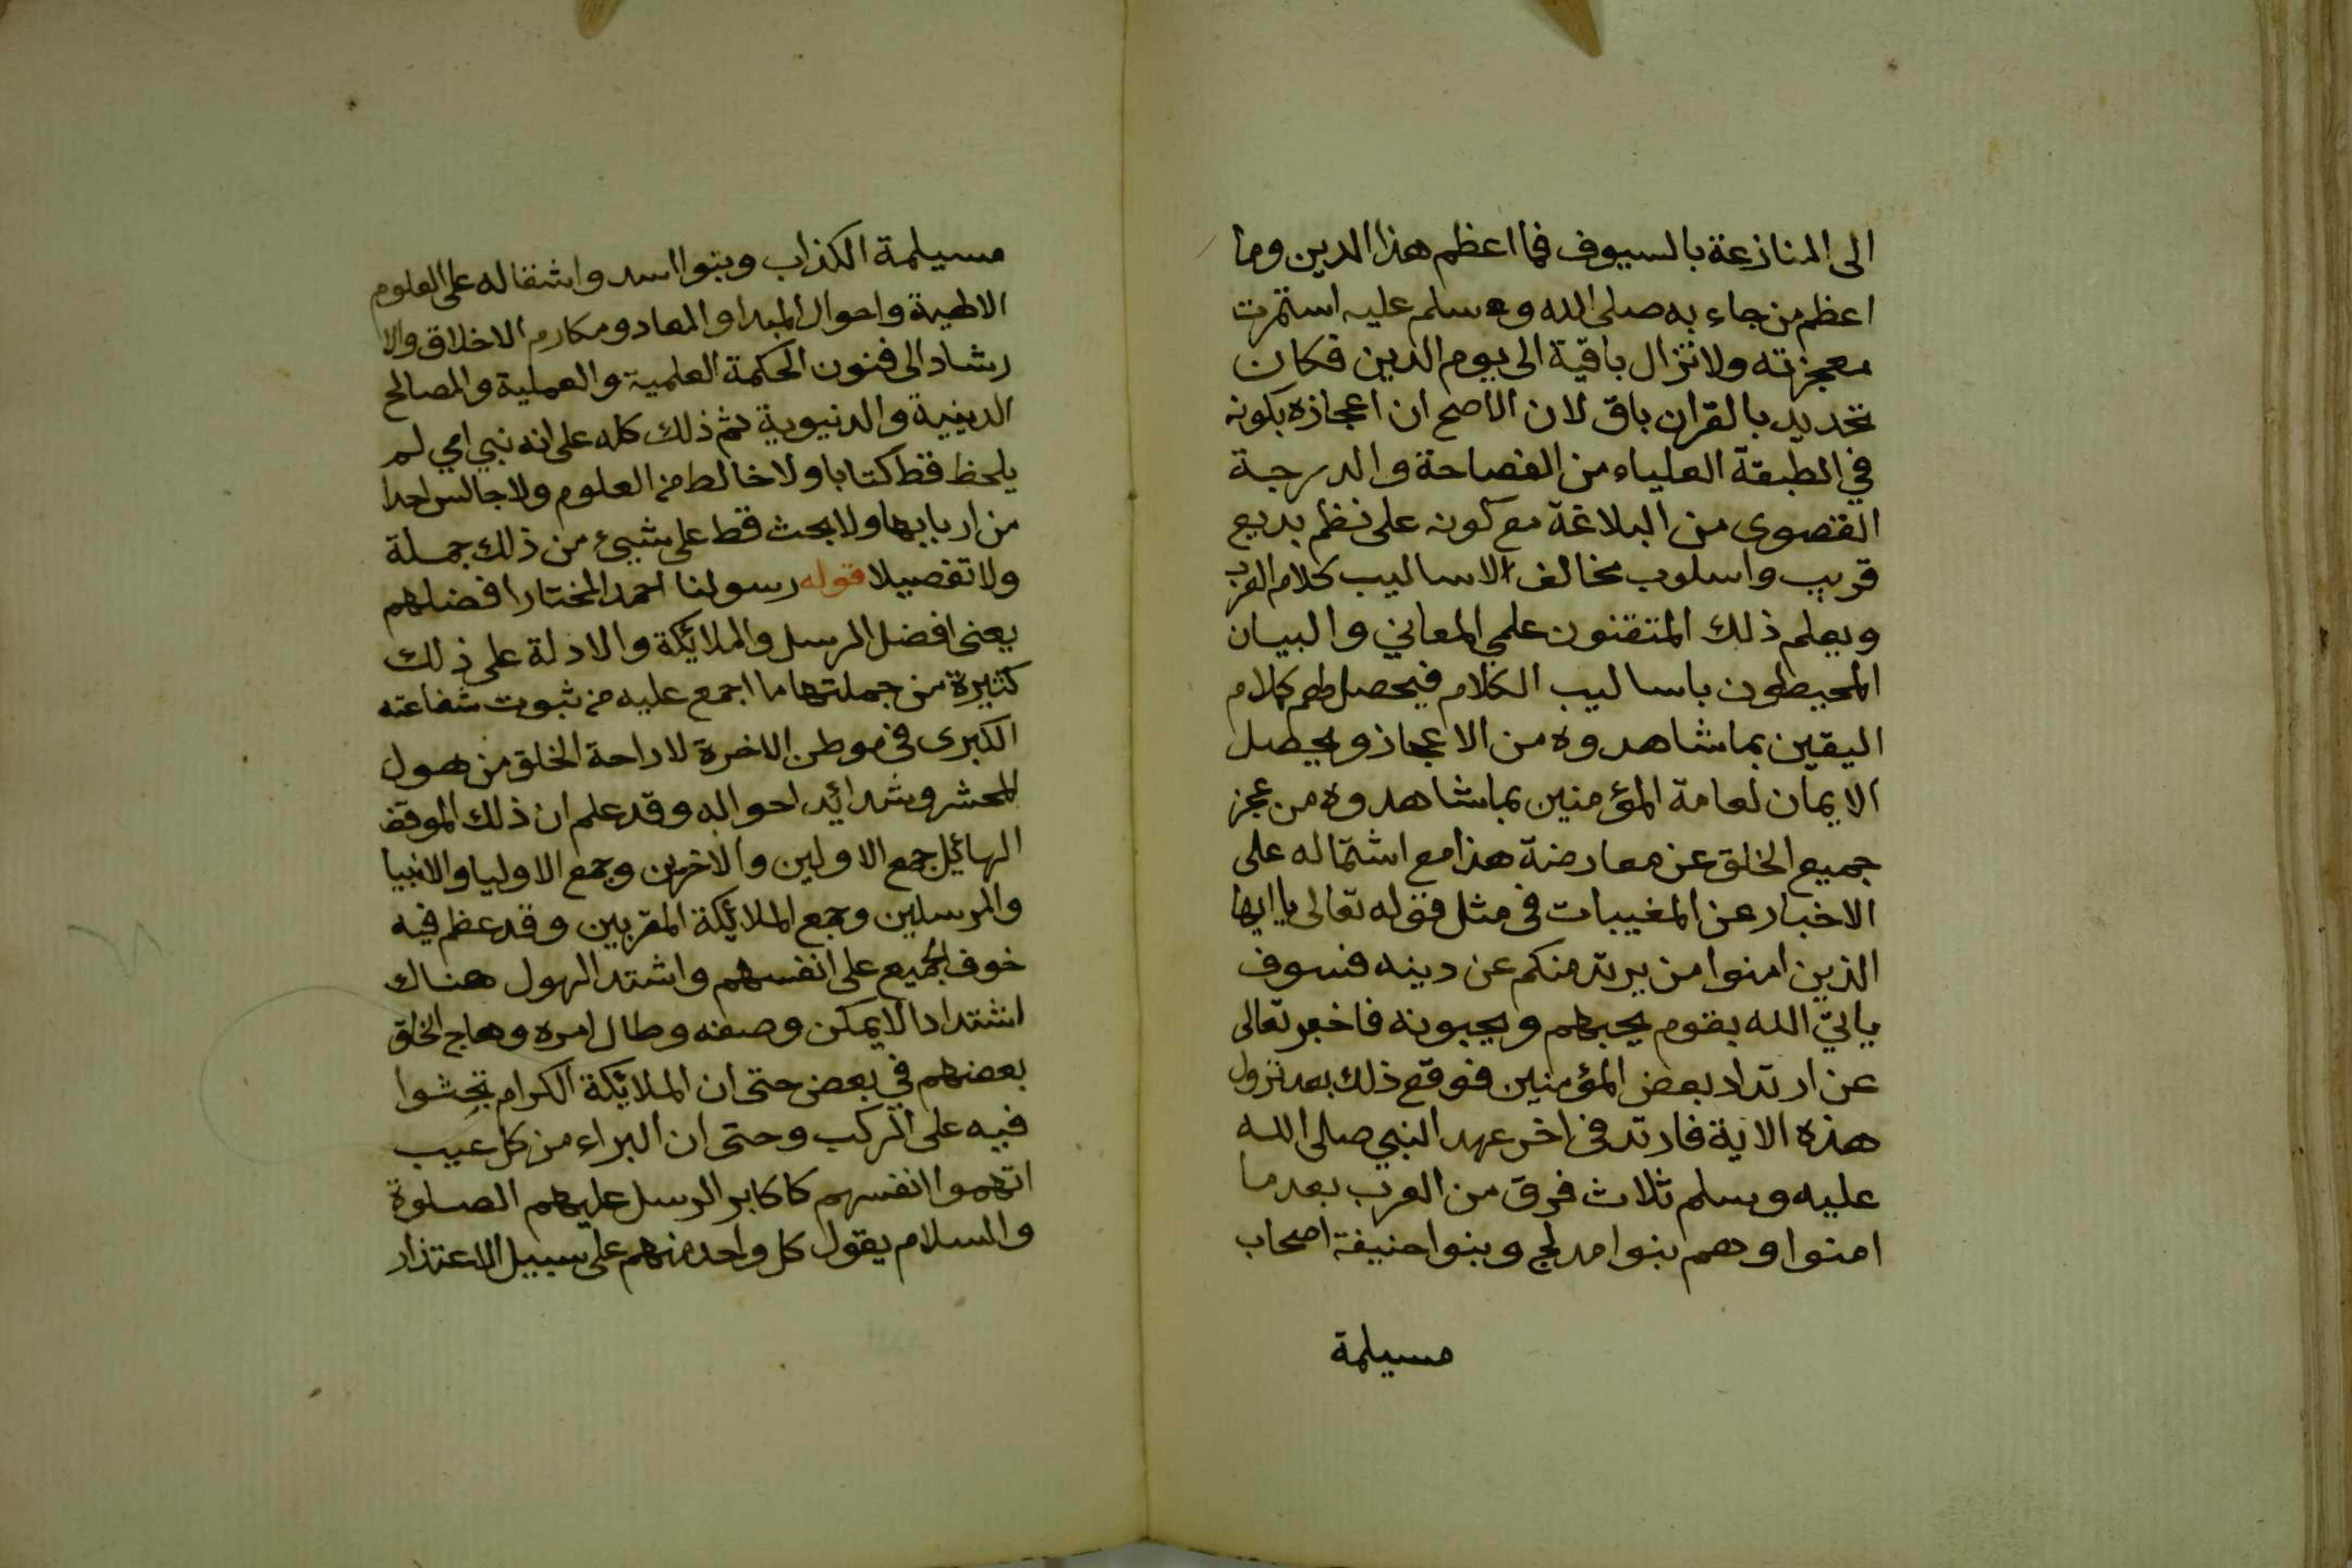 الى المنازعة بالسيوف فما اعظم هذا الدين وما
اعظم من جاء به صلى الله وسلم عليه استمرت
معجزته ولا تزال باقية الى يوم الدين فكان
تحديه بالقران باق لان الاصح ان اعجازه بكونه
في الطبقة العلياء من الفصاحة والدرجة
القصوى من البلاغة مع كونه على نظم بديع
قريب واسلوب مخالف الاساليب كلام العرب
ويعلم ذلك المتقنون علمي المعاني والبيان
المحيطون باساليب الكلام فيحصل لهم كلام
اليقين بما شاهدوه من الاعجاز ويحصل
الايمان لعامة المؤمنين بما شاهدوه من عجز
جميع الخلق عن معارضة هذا مع اشتماله على
الاخبار عن المغيبات فى مثل قوله تعالى يا ايها
الذين امنوا من يرتد منكم عن دينه فسوف
ياتي الله بقوم يحبهم ويحبونه فاخبر تعالى
عن ارتداد بعض المؤمنين فوقع ذلك بعد نزول
هذه الاية فارتد فى اخر عهد النبي صلى الله
عليه وسلم ثلاث فرق من العرب بعد ما
امنوا وهم بنوا مدلج وبنوا حنيفة اصحاب
مسيلمة
مسيلمة الكذاب وبنوا اسد واشتماله على العلوم
الالهية واحوال المبدا والمعاد ومكارم الاخلاق والا
رشاد الى فنون الحكمة العلمية والعملية والمصالح
الدينية والدنيوية ثم ذلك كله على انه نبي امي لم
يلحظ قط كتابا ولا خالط من العلوم ولا جالس احدا
من اربابها ولا بحث قط على شيئ من ذلك جملة
ولا تفصيلا قوله رسولنا احمد المختار افضلهم
يعنى افضل الرسل والملائكة والادلة على ذلك
كثيرة من جملتها ما اجمع عليه من ثبوت شفاعته
الكبرى فى موطن الاخرة لاراحة الخلق من هول
المحشر وشدائد احواله وقد علم ان ذلك الموقف
الهائل جمع الاولين والاخرين وجمع الاوليا والانبيا
والمرسلين وجمع الملائكة المقربين وقد عظم فيه
خوف الجميع على انفسهم واشتد الهول هناك
اشتدادا لا يمكن وصفه وطال امره وهاج الخلق
بعضهم في بعض حتى ان الملائكة الكرام تجثوا
فيه على الركب وحتى ان البراء من كل عيب
اتهموا انفسهم كاكابر الرسل عليهم الصلوة
والسلام يقول كل واحد منهم على سبيل الاعتذار